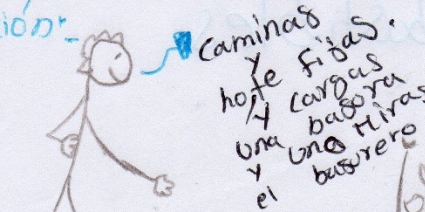 ión:-
caminas
y
no te fijas.
y cargas
una basura
y uno miras
el basurero